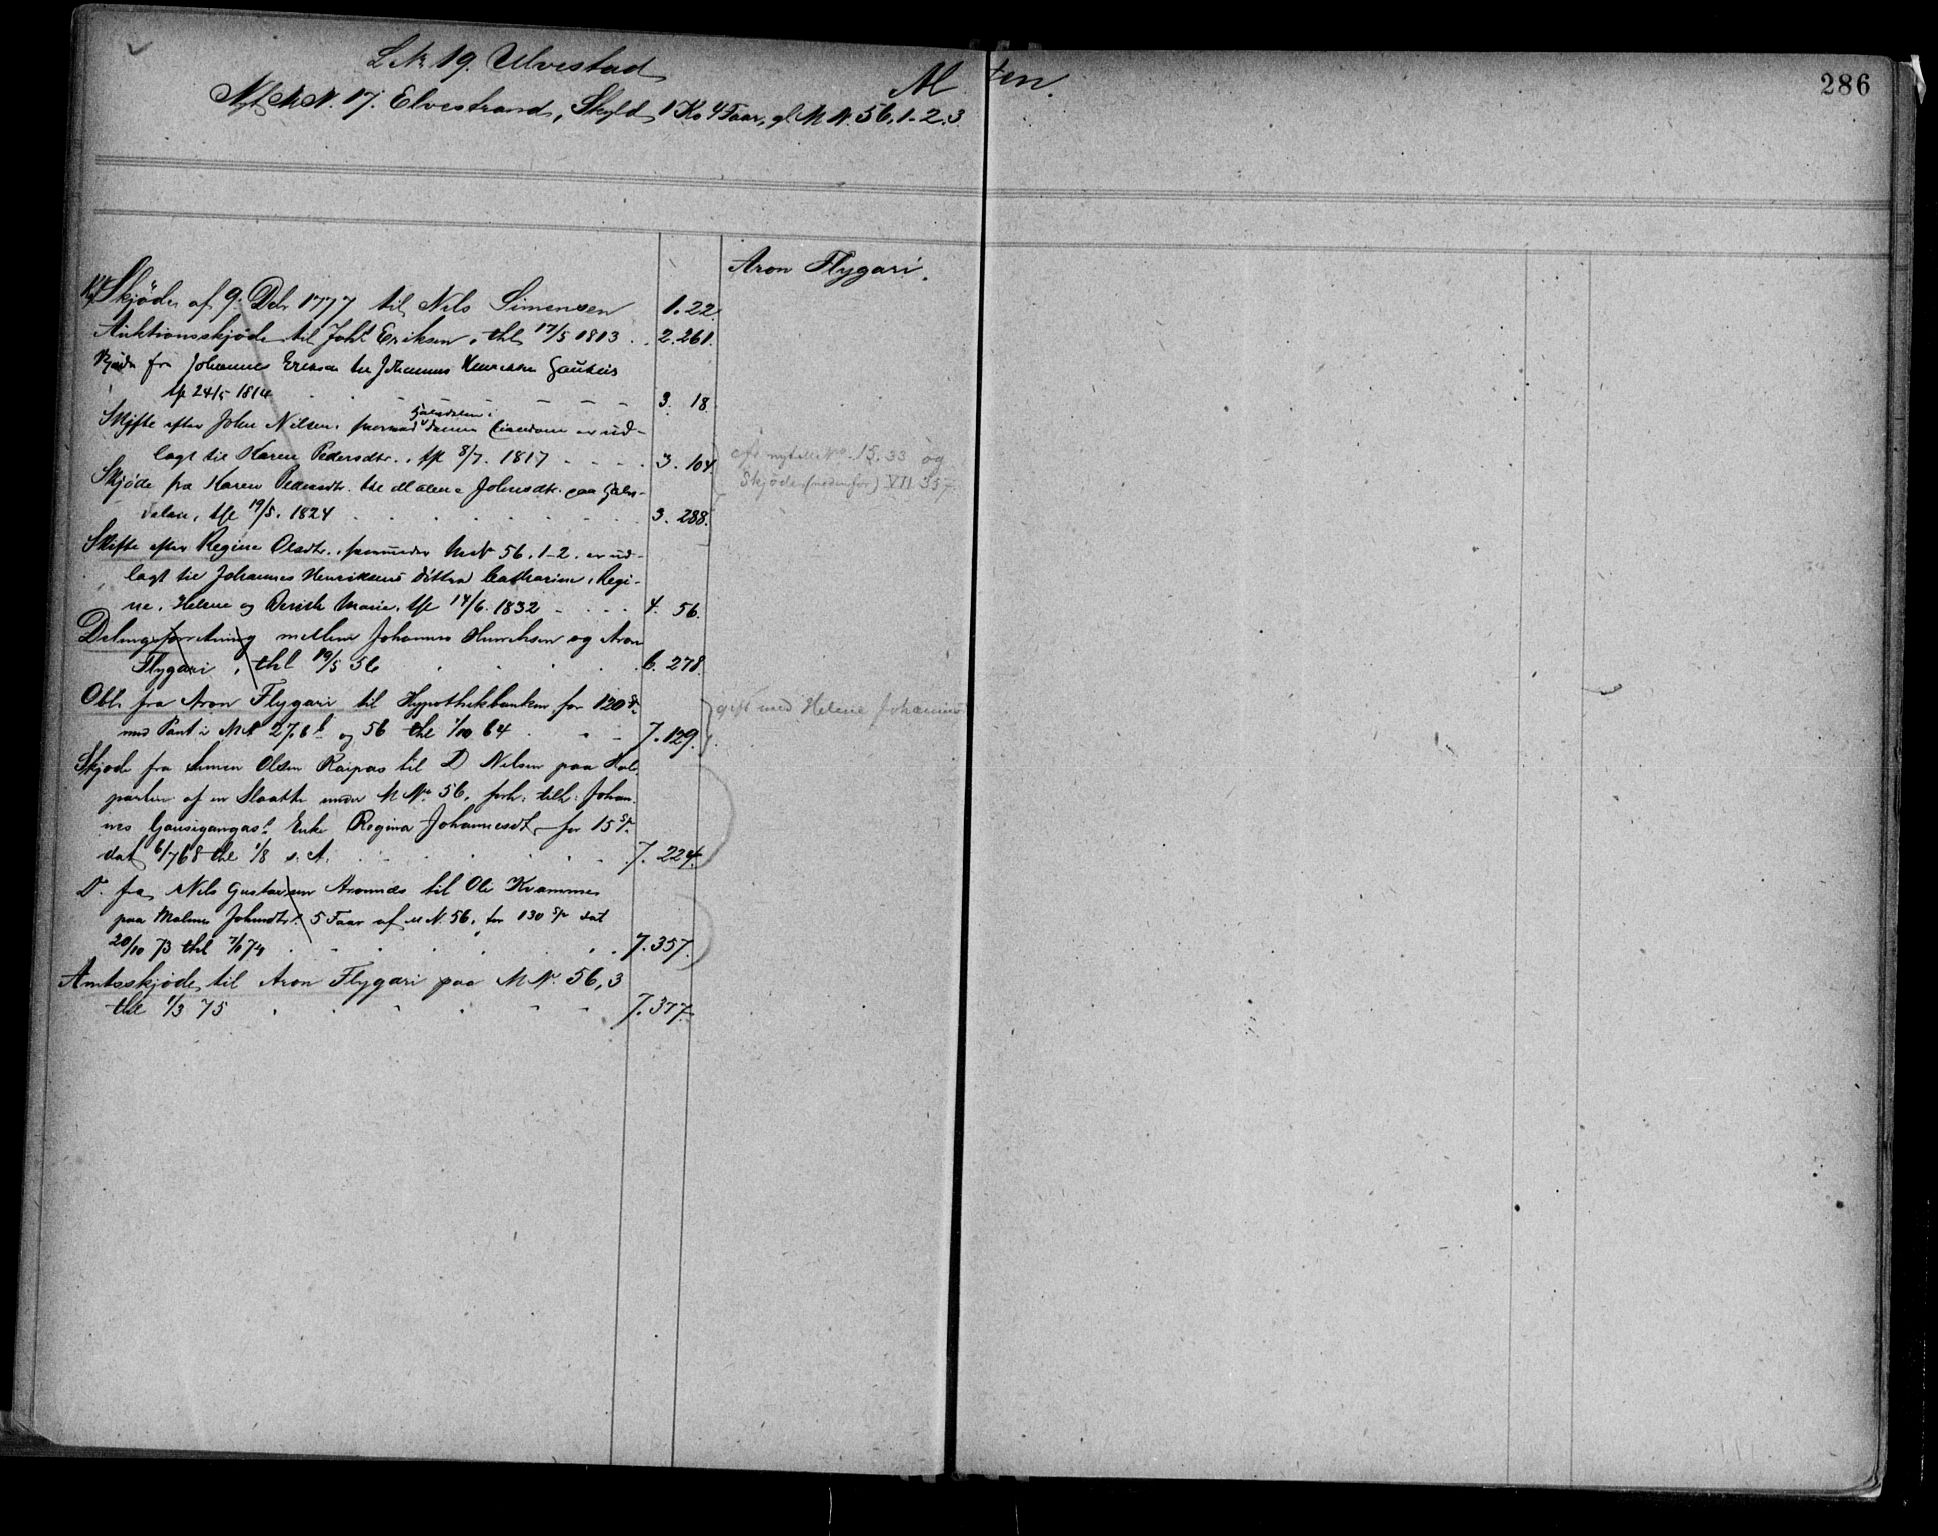 L№ 19. Ulvestad
Al ten.
286
Nyt M.N. 17. Elvestrand, Skyld 1 Ko 4 Faar, gl. M.N. 56, 1-2.3
Aron Flygari.
Skjøde af 9. Debr 1777 til Nils Simensen 1. 22.
Auktionsskjøde til Joh. Eriksen, thl 17/5 1813 . . 2. 261.
Skjøde fra Johannes Eriksen til Johannes Henriksen
tgl 24/5 1814 3. 18.
Skifte efter John Nilsen, hvorved denne Eiendom er ud-
lagt til Karen Pedersdtr., tgl 8/7. 1817 . . . . 3. 104.
cfr. nyt M.No. 15. 33 og
Skjøde fra Karen Pedersdtr. til Malene Johnsdtr. paa
Skjøde (nedenfor) VII 357
dalen, tgl 19/5. 1824 3. 288.
Skifte efter Regine Olsdtr., hvorunder MNo 56. 1-2. er ud-
lagt til Johannes Henriksens Døttre Catharine, Regi-
ne, Helene og Marie, tgl 14/6. 1832 4. 56.
Delingsforretning mellem Johannes Henriksen og Aron
Flygari, thl 19/5 56 6. 278.
Obl. fra Aron Flygari til Hypothekbanken for 120 Sp.
gift med Helene Johannes
med Pant i M N 27, 6 og 56 thl 1/10 64 7. 129.
Skjøde fra Simen Olsen Raipas til D Nilsen paa Hal-
parten af en Slaatte under M No. 56, forh. tilh. Johan-
nes Enke Regina Johannesdt. for 15 Sp.
dat 6/7 68 thl 1/8 s. A. 7. 224.
D. fra Nils Gustavsen Aronnæs til Ole Kvamme
paa Malene Johnsdtr. 5 Faar af M N. 56, for 130 Sp dat
20/10 73 thl 74 7. 357.
Amtsskjøde til Aron Flygari paa M N. 56, 3
thl 1/3 75 7. 377.